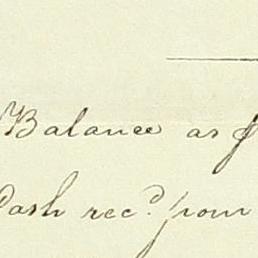 Balance as
Cash rec.d from